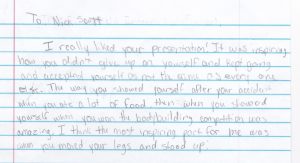 To: Nick Scott
I really liked your presentation! It was inspiring
how you didn't give up on yourself and kept going
and accepted yourself as not the same as every one
else. The way you showed yourself after your accident
when you ate a lot of food, then when you showed
yourself when you won the bodybuilding competition was
amazing. I think the most inspiring part for me was
when you moved your legs and stood up.